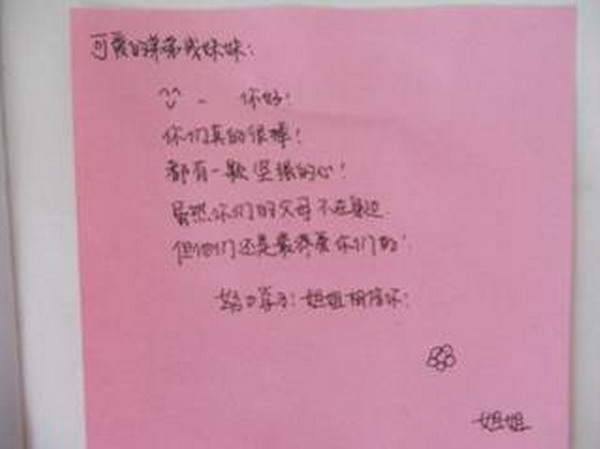 可爱的弟弟或妹妹：
你好！
你们真的很棒！
都有一颗坚强的心！
虽然你们的父母不在身边
但他们还是最疼爱你们的！
努力学习！姐姐相信你！
姐姐